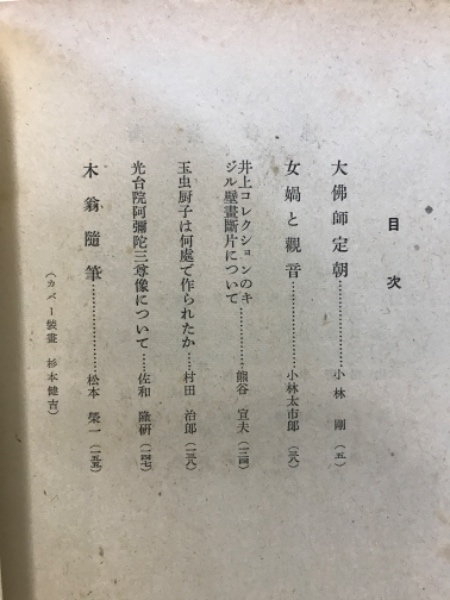 目次
大佛師定朝……………………小林 剛(五)
女媧と觀音……………………小林太市郎(三八)
井上コレクションのキ
ジル壁畫斷片について……熊谷 宣夫(一三四)
玉虫厨子は何處で作られたか……村田 治郎(一三八)
光台院阿彌陀三尊像について……佐和 隆研(一四七)
木翁隨筆……………………松本 榮一(一五五)
(カバー裝畫 杉本健吉)